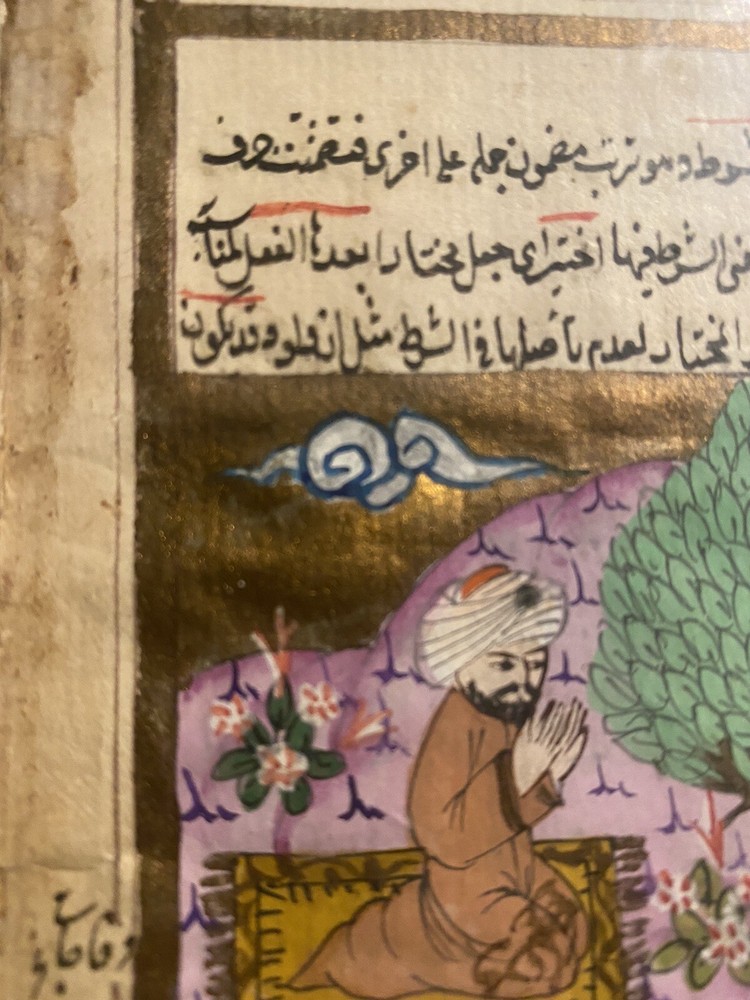 وهو ترتب مضمون جملة على اخرى فتضمنت حرف
الشرط فيها اختير اى جعل مختارا بعدها الفعل لمناسبة
المختار لعدم تأصلها فى الشرط مثل ان ولو وقد يكون